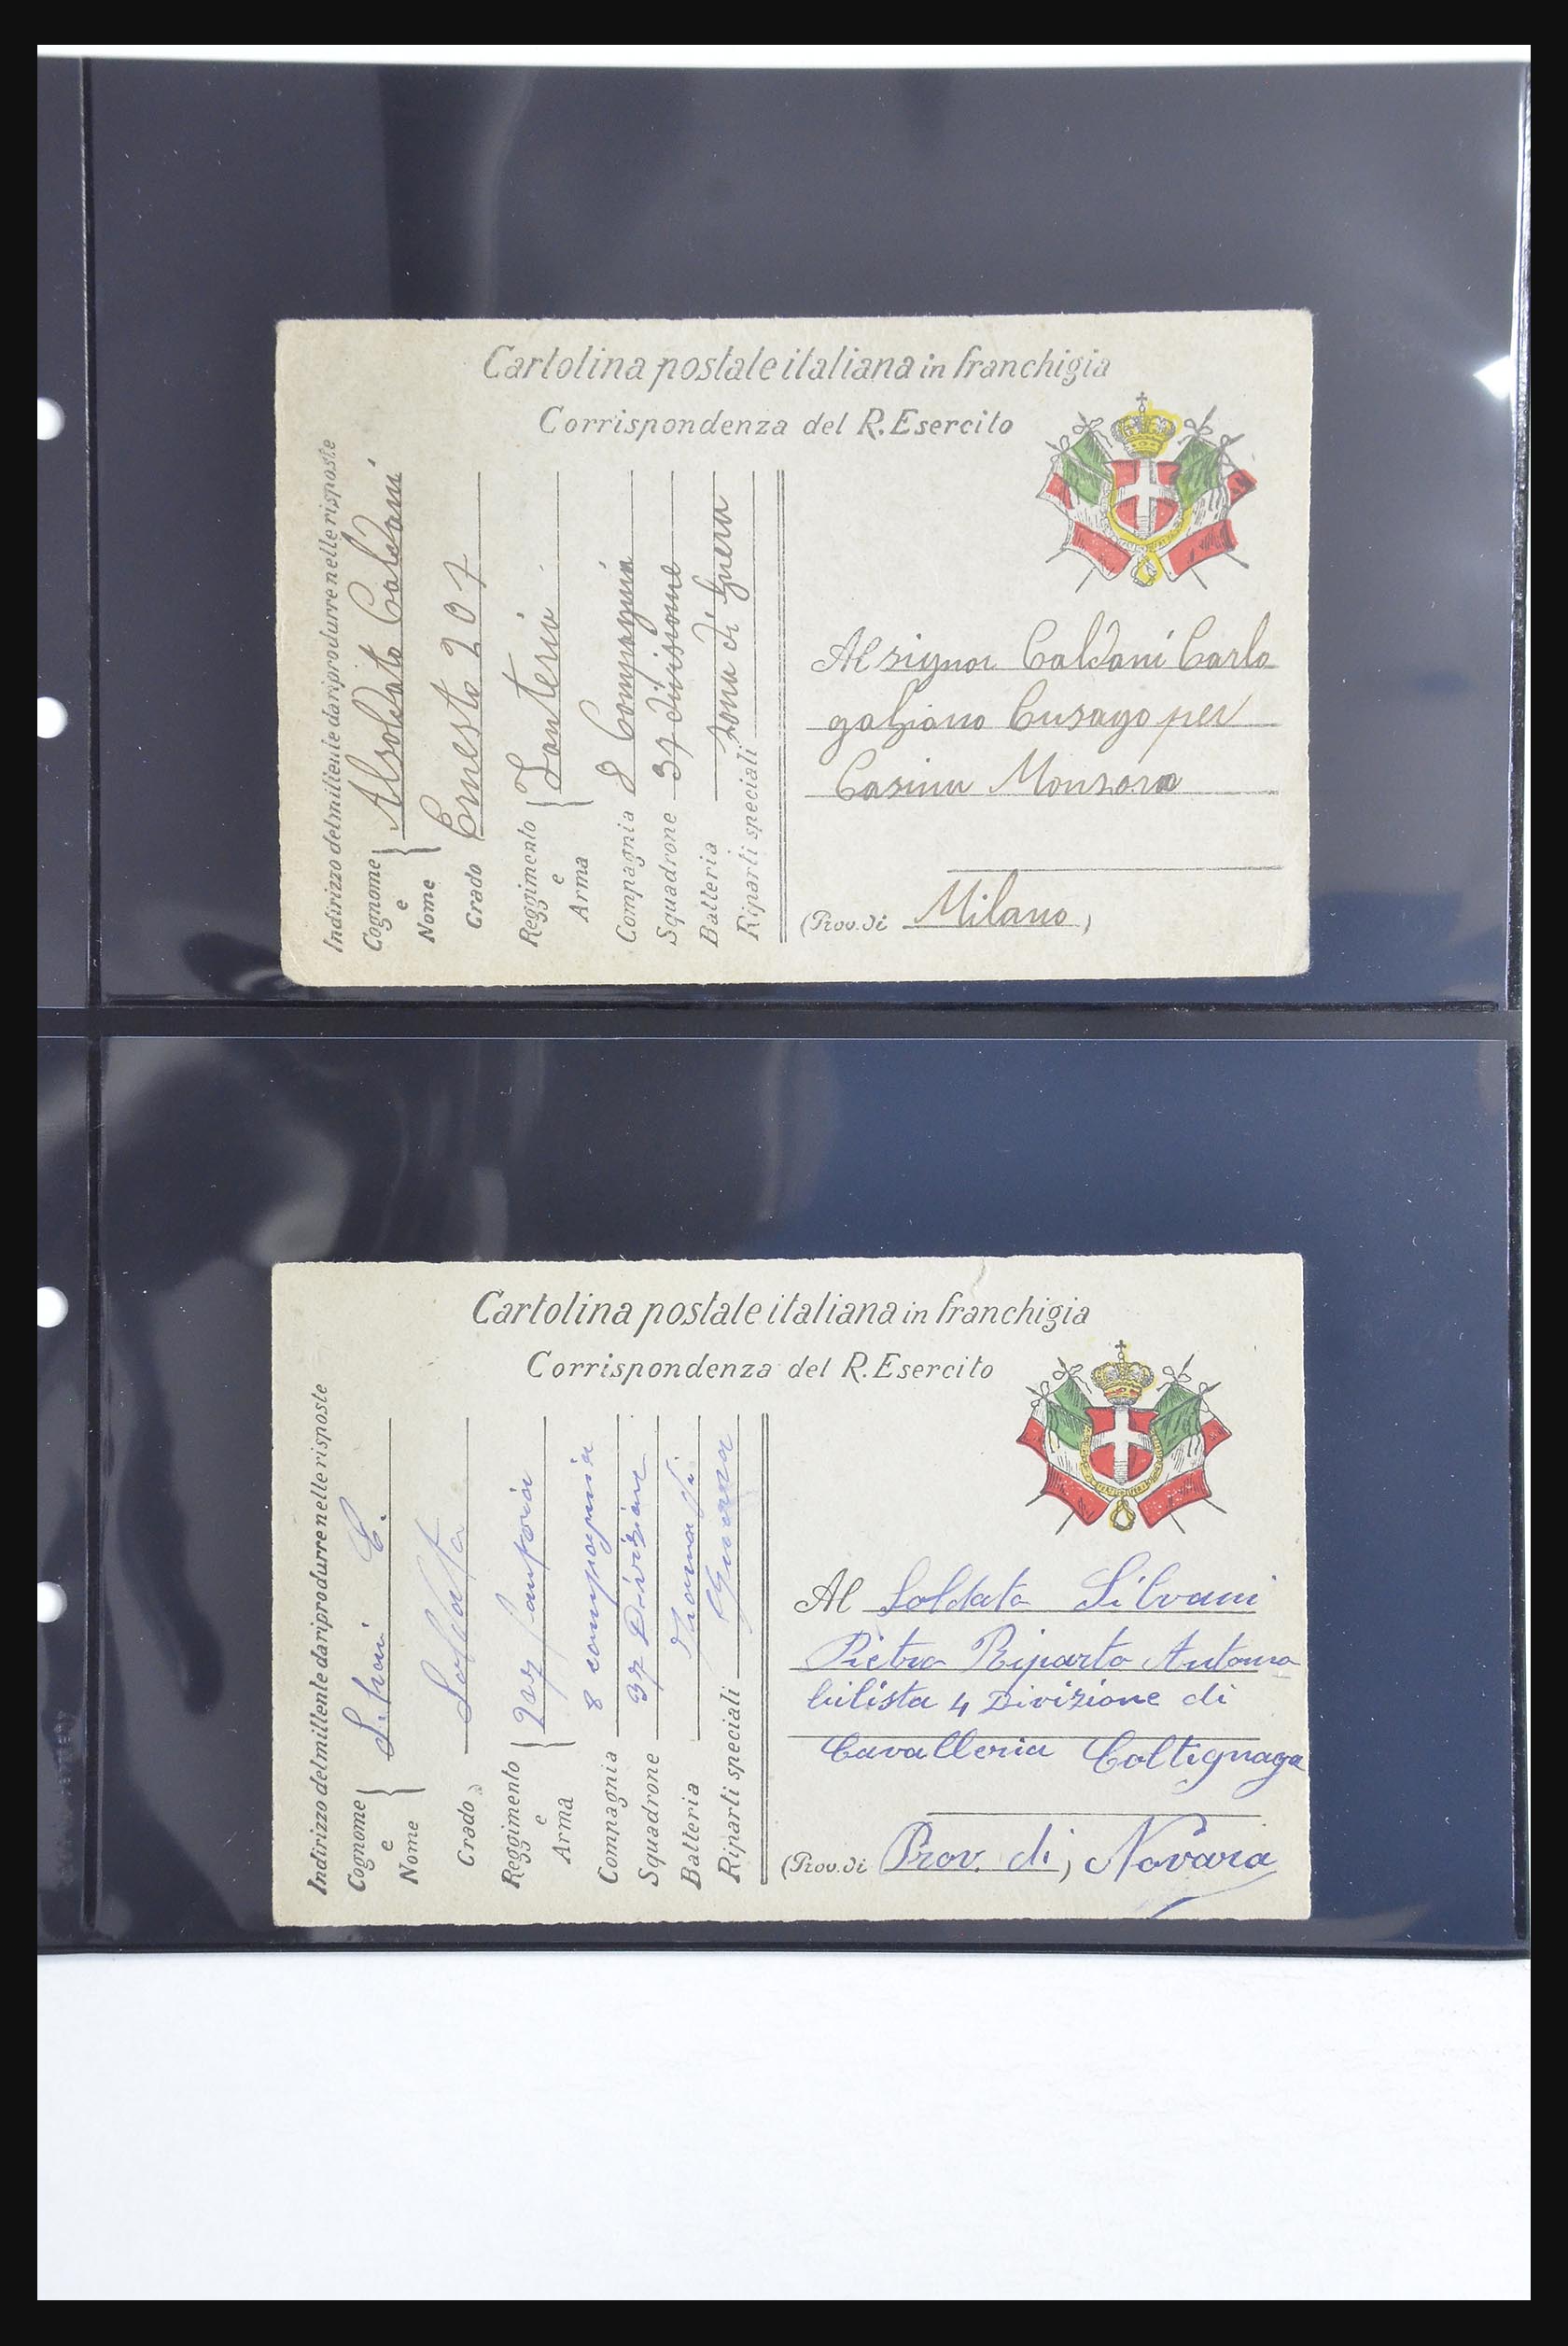 Cartolina postale italiana in franchigia
Corrispondenza del R. Esercito
Indirizzo del mittente da riprodurre nelle risposte
Cognome e Nome { Alsoldato Caldani
Grado Ernesto 207
Reggimento e Arma { Fanteria
Compagnia 8 Compagnia
Squadrone 37 divisione
Batteria zona di guera
Riparti speciali
Al signor Caldani Carlo
Cusago per
Casina Monzoro
(Prov. di Milano)
Cartolina postale italiana in franchigia
Corrispondenza del R. Esercito
Indirizzo del mittente da riprodurre nelle risposte
Cognome e Nome { C.
Grado Soldato
Reggimento e Arma { 207 fanteria
Compagnia 8 compagnia
Squadrone 37 Divisione
Batteria Zona di
Riparti speciali Guerra
Al Soldato Silvani
Pietro Riparto Automo
bilista 4 Divizione di
Cavalleria Caltignaga
(Prov. di Prov. di, Novara